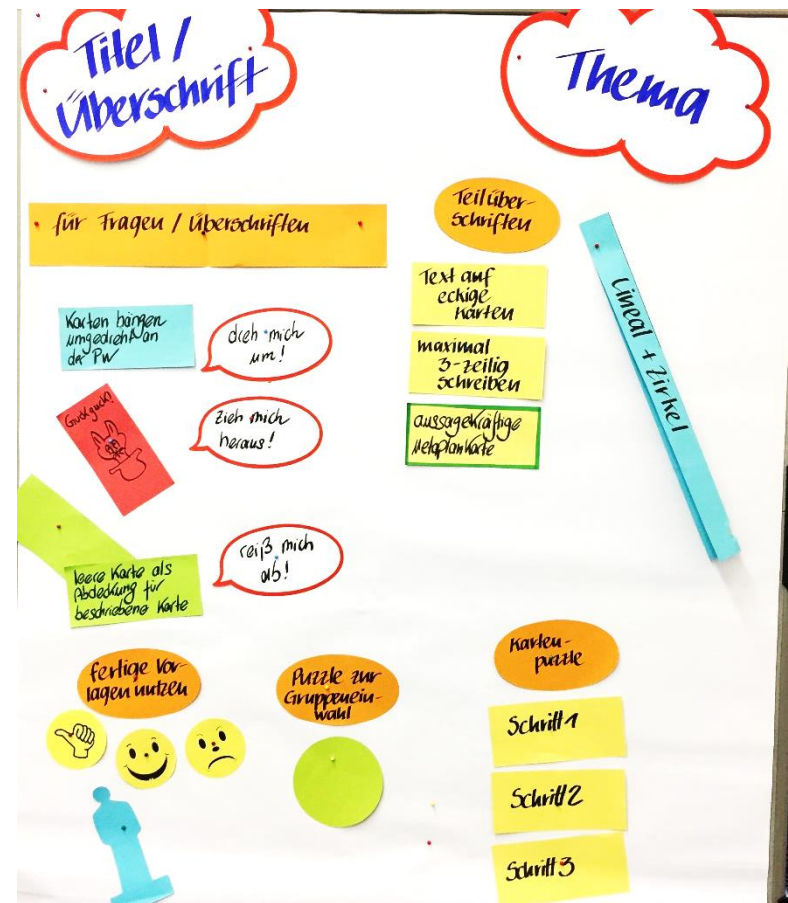 Titel /
Überschrift
Thema
für Fragen / Überschriften
Teilüber-
schriften
Text auf
eckige
Karten
maximal
3-zeilig
schreiben
aussagekräftige
Metaplankarte
Lineal + Zirkel
Karten hängen
umgedreht an
der PW
dreh mich
um!
Guckguck!
Zieh mich
heraus!
leere Karte als
Abdeckung für
beschriebene Karte
reiß mich
ab!
fertige Vor-
lagen nutzen
Puzzle zur
Gruppenein-
wahl
Karten-
puzzle
Schritt 1
Schritt 2
Schritt 3